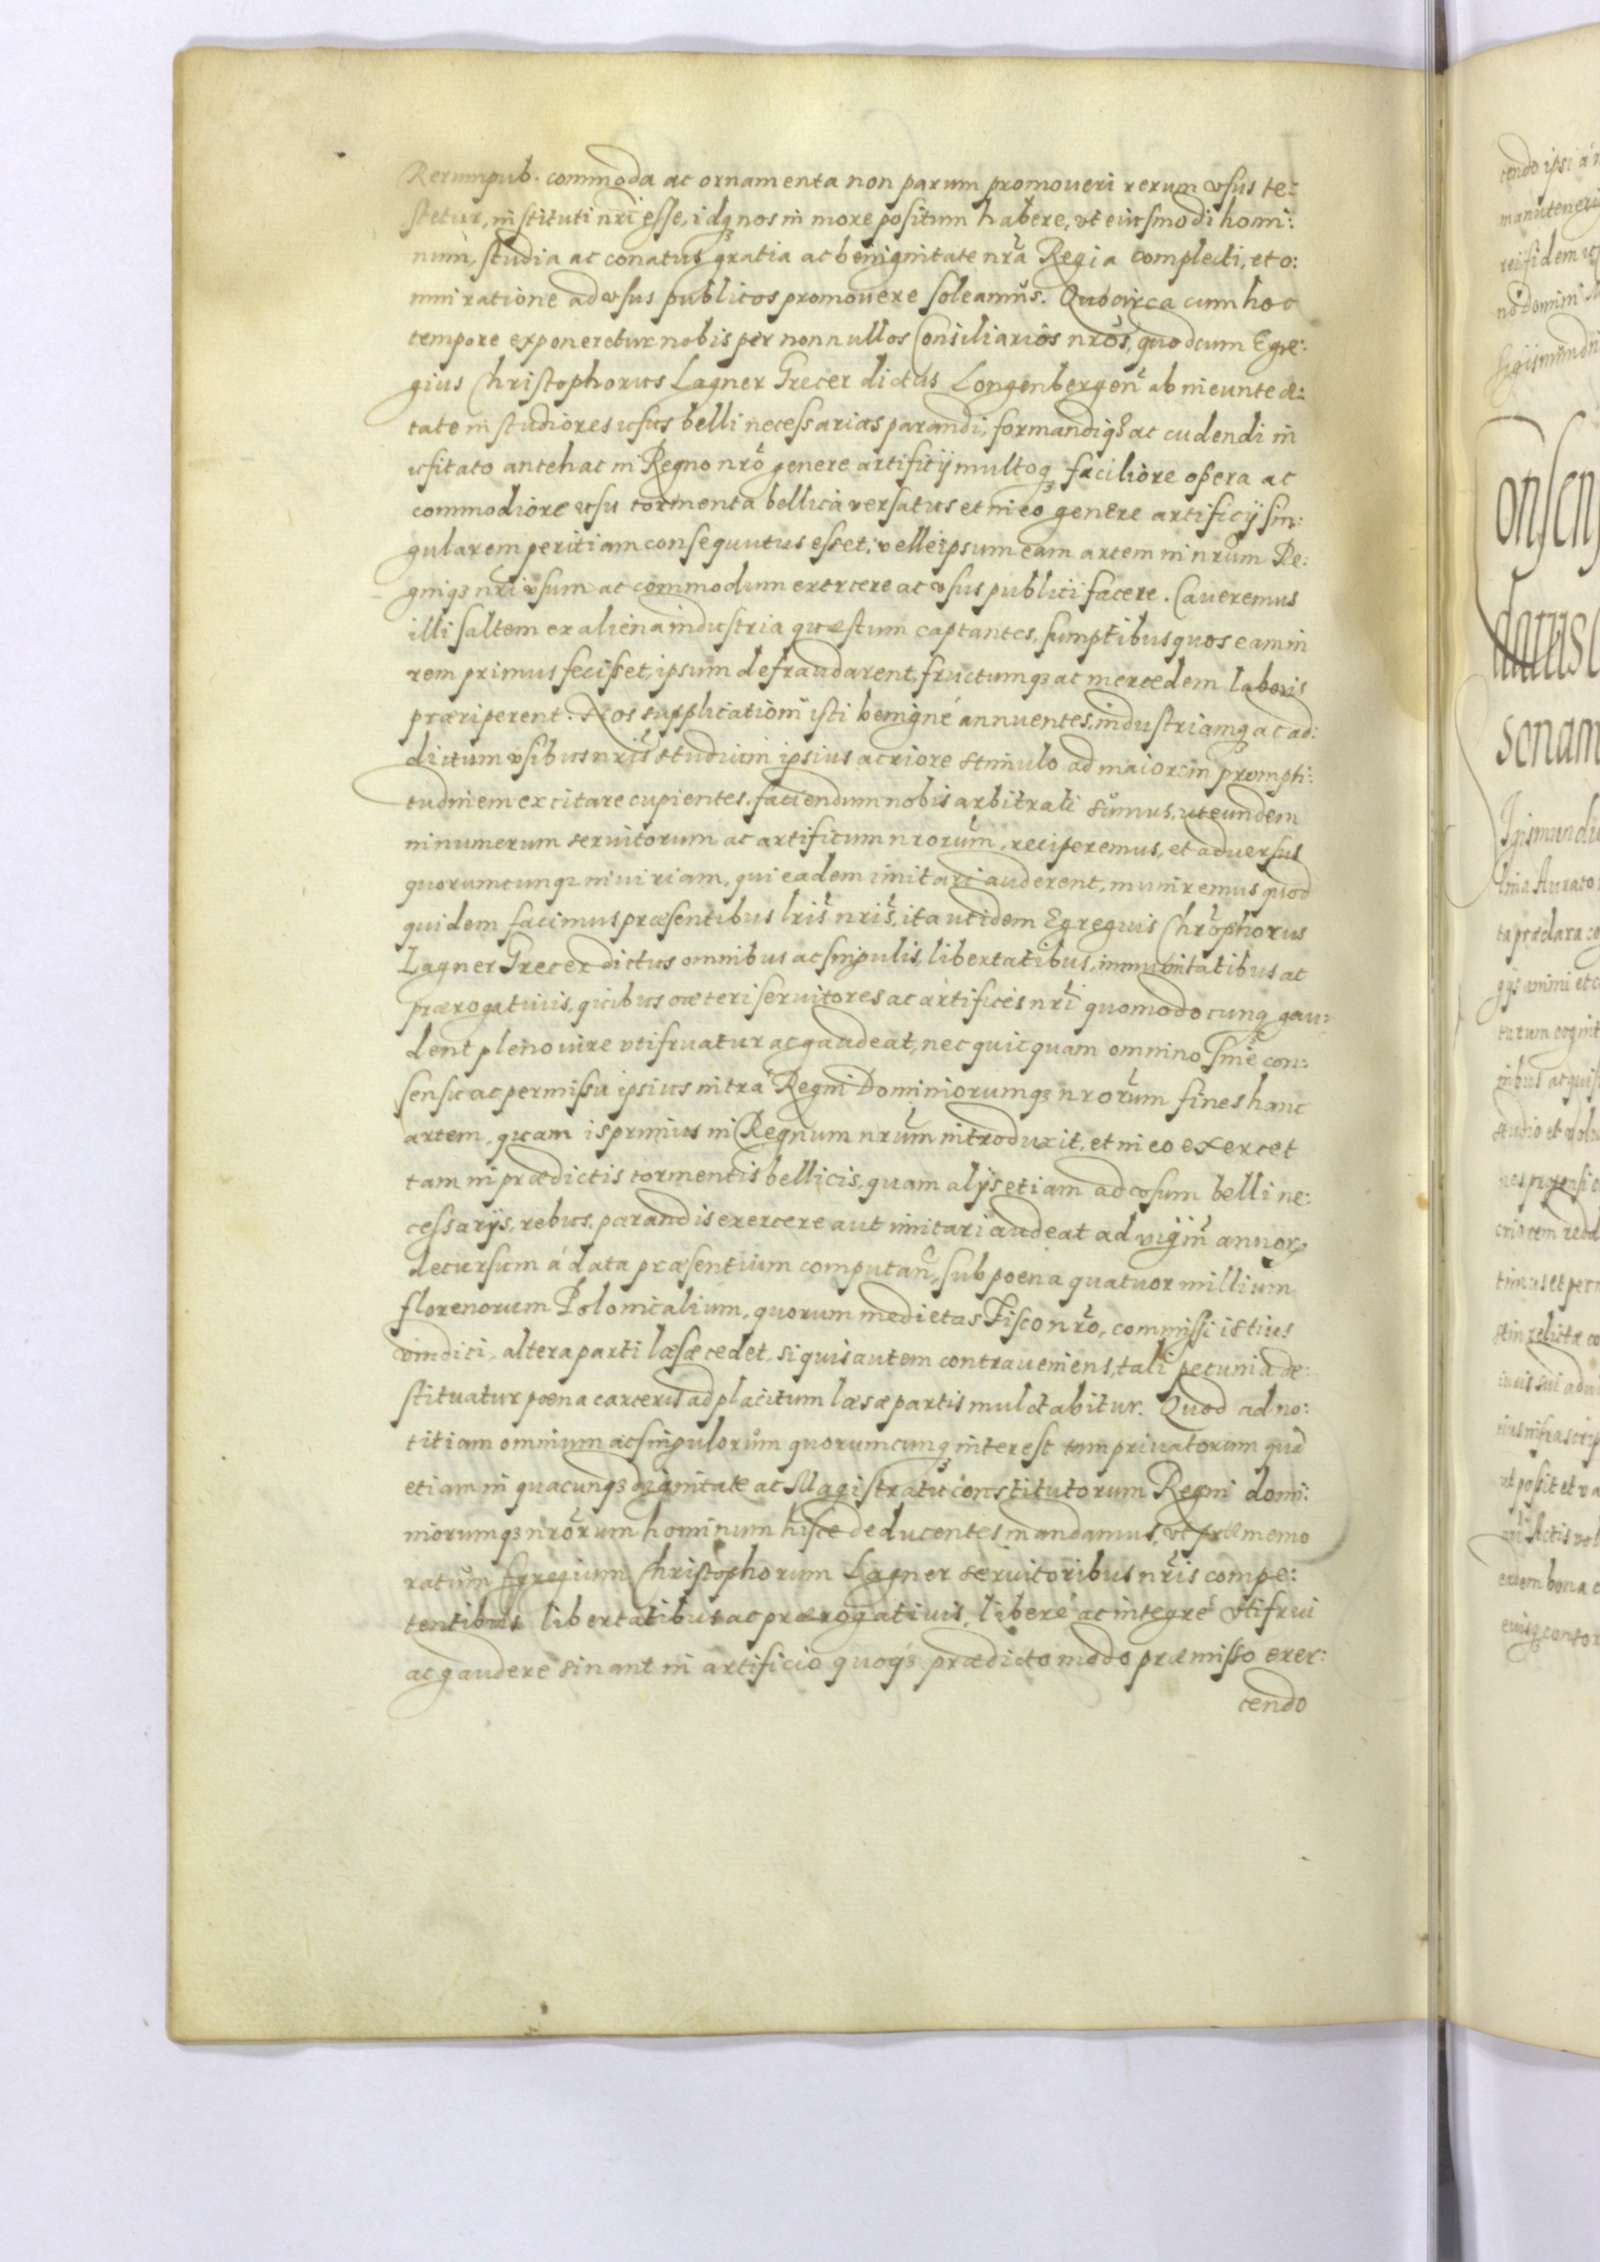 Rerumpub. commoda ac ornamenta non parum promoveri rerum vsus te=
stetur, instituti nr̃i esse, idqȝ nos in more positum habere, vt eiusmodi homi:
num, studia ac conatus gratia ac benignitate nr̃a Regia complecti, et o:
mni ratione ad vsus publicos promovere soleamus. Quocirca cum hoc
tempore exponeretur nobis per nonnullos Consiliarios nr̃os, quod cum Egre:
gius Christophorus Lagner Grecer dictus Longenbergen̄ ab ineunte æ:
tate in studio res usus belli necessarias parandi, formandiqȝ ac cudendi in
usitato antehac in Regno nr̃o genere artificij multoqȝ faciliore opera ac
commodiore usu tormenta bellica versatus et in eo genere artificij sin:
gularem peritiam consequutus esset, velle ipsum eam artem in nr̃um Re:
gniqȝ nr̃i vsum ac commodum exercere ac vsus publici facere. Caveremus
illi saltem ex aliena industria quæstum captantes, sumptibus quos eam in
rem primus fecisset, ipsum defraudarent, fructumqȝ ac mercedem laboris
præriperent. Nos supplicationi isti benigné annuentes, industriamqȝ ac ad:
dictum vsibus nr̃is studium ipsius acriore stimulo ad maiorem prompti:
tudinem excitare cupientes, faciendum nobis arbitrati sumus, ut eundem
in numerum servitorum ac artificum nrorum̃, reciperemus, et adversus
quorumcunqȝ iniuriam, qui eadem imitari auderent, muniremus quod
quidem facimus præsentibus lr̃is nr̃is, ita ut idem Egregius Chrõphorus
Lagner Grecer dictus omnibus ac singulis, libertatibus, immunitatibus ac
prærogativis, quibus cæteri servitores ac artifices nr̃i quomodocunqȝ gau:
dent pleno iure utifruatur ac gaudeat, nec quicquam omnino sine con:
sensu ac permissu ipsius intra Regni Dominiorumqȝ nrorum̃ fines hanc
artem, quam is primus in Regnum nrum̃ introduxit, et in eo exercet
tam in prædictis tormentis bellicis, quam alijs etiam ad vsum belli ne:
cessarijs, rebus, parandis exercere aut imitari audeat ad viginti annorȝ
decursum á data præsentium computan̄, sub poena quatuor millium
florenorum Polonicalium, quorum medietas Fisco nr̃o, commissi istius
vindici, altera parti læsæ cedet, si quis autem contraveniens, tali pecunia de:
stituatur poena carceris ad placitum læsæ partis mulctabitur. Quod ad no:
titiam omnium ac singulorum quorumcunqȝ interest tam privatorum quã
etiam in quacunqȝ dignitate ac Magistratu constitutorum Regni domi:
niorumqȝ nrõrum hominum hisce deducentes mandamus, vt præmemo
ratum Egregium Christophorum Lagner servitoribus nr̃is compe:
tentibus libertatibus ac prærogativis, liberé ac integré utifrui
ac gaudere sinant in artificio quoqȝ prædicto modo præmisso exer:
cendo
cendo ipsi
manuteneri
rei fidem
nõ domini
Sigismundi
onsens
datus
sonam
Igismundu
lina Aurato
ta præclara
gijs animi et